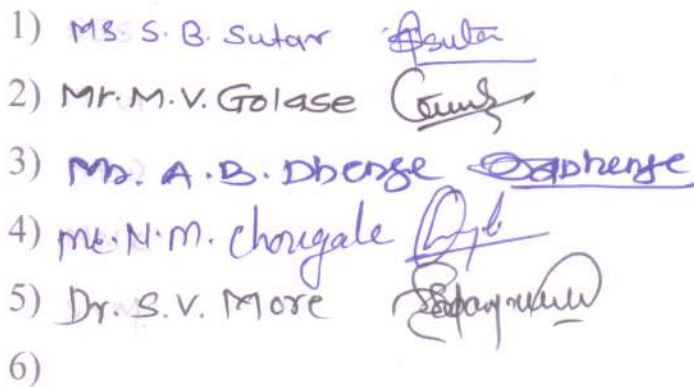 1) Ms. S. B. Sutar
2) Mr. M. V. Golase
3) A. B. Dhenge
4) Mr. N. M. Chougale
5) Dr. S. V. More
6)